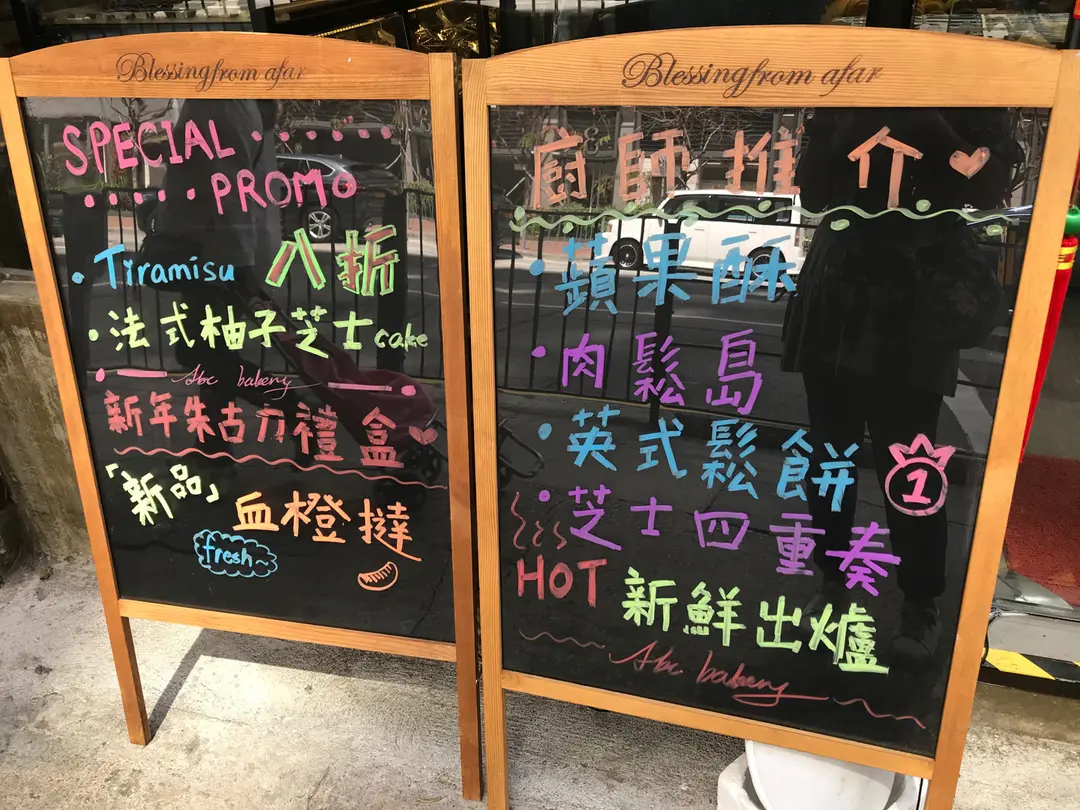 Blessingfrom afar
SPECIAL
PROMO
Tiramisu 八折
法式柚子芝士cake
Abc bakery
新年朱古力禮盒
「新品」
血橙撻
fresh~
Blessingfrom afar
廚師推介
蘋果酥
肉鬆島
英式鬆餅 1
芝士四重奏
HOT 新鮮出爐
Abc bakery